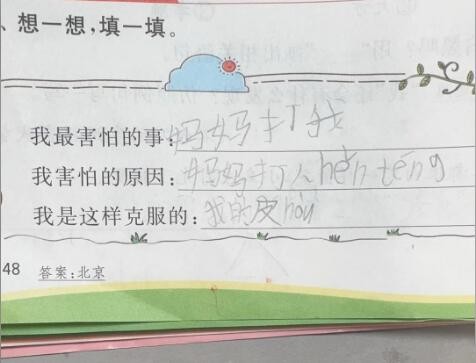 、想一想，填一填。
我最害怕的事：妈妈打我
我害怕的原因：妈妈打人hěn téng
我是这样克服的：我的皮hòu
48 答案：北京